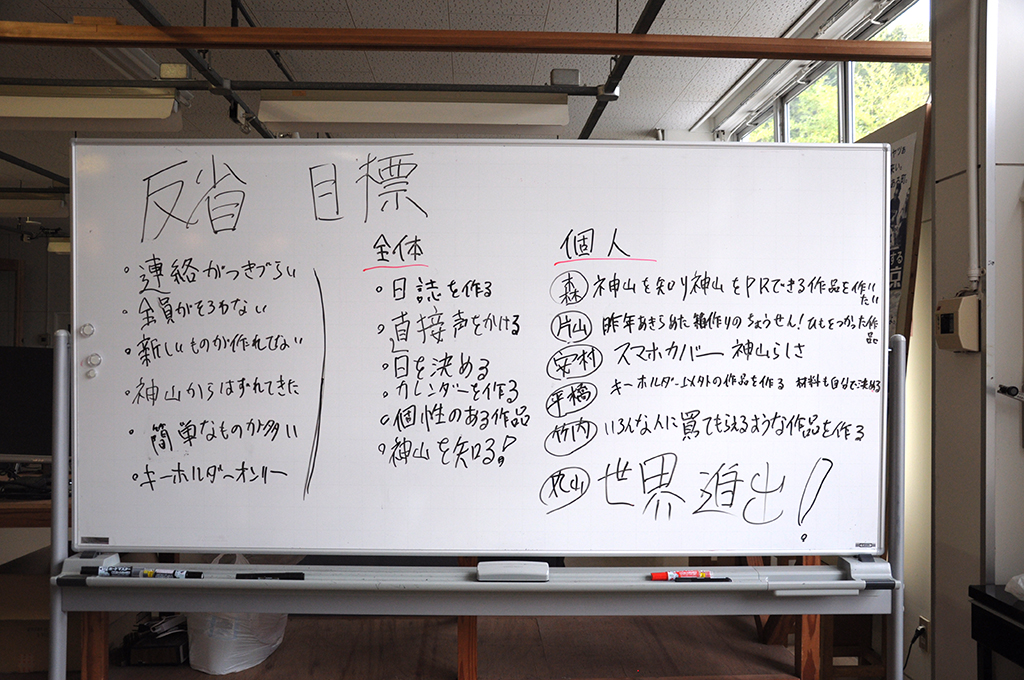 反省 目標
・連絡がつきづらい
・全員がそろわない
・新しいものが作れてない
・神山からはずれてきた
・簡単なものが多い
・キーホルダーオンリー
全体
・日誌を作る
・直接声をかける
・日を決める
カレンダーを作る
・個性のある作品
・神山を知る!
個人
森 神山を知り神山をPRできる作品を作りたい
片山 昨年あきらめた箱作りのちょうせん!ひもをつかった作品
安村 スマホカバー 神山らしさ
平橋 キーホルダー以外の作品を作る 材料も自分で決める
竹内 いろんな人に買てもらえるような作品を作る
丸山 世界進出!